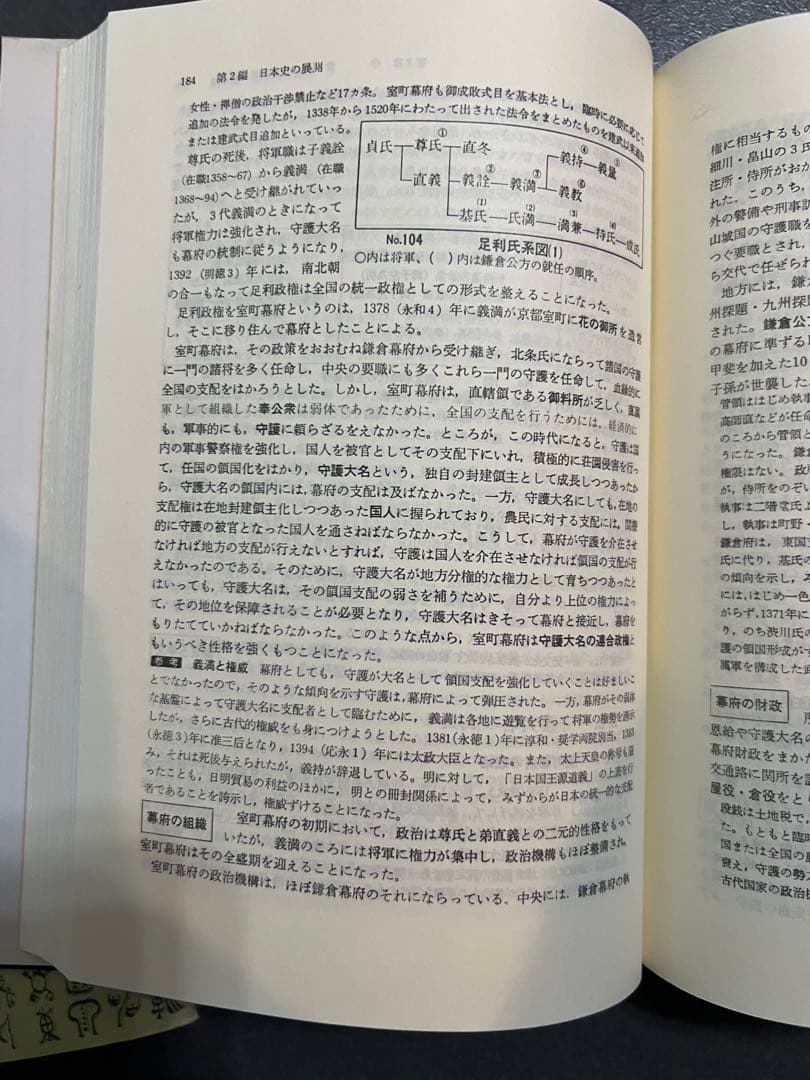 184 第2編 日本史の展開
女性・禅僧の政治干渉禁止など17カ条。室町幕府も御成敗式目を基本法とし，臨時に必要に応じて
追加の法令を発したが，1338年から1520年にわたって出された法令をまとめたものを建武以来追加
または建武式目追加といっている。
尊氏の死後，将軍職は子義詮
(在職1358〜67) から義満 (在職
1368〜94) へと受け継がれていっ
たが，3代義満のときになって
将軍権力は強化され，守護大名
も幕府の統制に従うようになり，
1392 (明徳3) 年には，南北朝
の合一もなって足利政権は全国の統一政権としての形式を整えることになった。
①
貞氏 尊氏 直冬
④ ⑤
義持 義量
② ③
直義 義詮 義満
⑥
義教
(1) (2) (3) (4)
基氏 氏満 満兼 持氏 成氏
No.104 足利氏系図(1)
○内は将軍，( )内は鎌倉公方の就任の順序。
足利政権を室町幕府というのは，1378 (永和4) 年に義満が京都室町に花の御所を造営
し，そこに移り住んで幕府としたことによる。
室町幕府は，その政策をおおむね鎌倉幕府から受け継ぎ，北条氏にならって諸国の守護
に一門の諸将を多く任命し，中央の要職にも多くこれら一門の守護を任命して，血縁的に
全国の支配をはかろうとした。しかし，室町幕府は，直轄領である御料所が乏しく，直属
軍として組織した奉公衆は弱体であったために，全国の支配を行うためには，経済的に
も，軍事的にも，守護に頼らざるをえなかった。ところが，この時代になると，守護は国
内の軍事警察権を強化し，国人を被官としてその支配下にいれ，積極的に荘園侵害を行っ
て，任国の領国化をはかり，守護大名という，独自の封建領主として成長しつつあったか
ら，守護大名の領国内には，幕府の支配は及ばなかった。一方，守護大名にしても，在地の
支配権は在地封建領主化しつつあった国人に握られており，農民に対する支配には，間接
的に守護の被官となった国人を通さねばならなかった。こうして，幕府が守護を介在させ
なければ地方の支配が行えないとすれば，守護は国人を介在させなければ領国の支配が行
えなかったのである。そのために，守護大名が地方分権的な権力として育ちつつあったと
はいっても，守護大名は，その領国支配の弱さを補うために，自分より上位の権力によっ
て，その地位を保障されることが必要となり，守護大名はきそって幕府と接近し，幕府を
もりたてていかねばならなかった。このような点から，室町幕府は守護大名の連合政権と
もいうべき性格を強くもつことになった。
参考 義満と権威 幕府としても，守護が大名として領国支配を強化していくことは好ましいこ
とでなかったので，そのような傾向を示す守護は，幕府によって弾圧された。一方，幕府がその弱体
な基盤によって守護大名に支配者として臨むために，義満は各地に遊覧を行って将軍の権勢を誇示
したが，さらに古代的権威をも身につけようとした。1381(永徳1)年に淳和・奨学両院別当，1383
(永徳3)年に准三后となり，1394 (応永1) 年には太政大臣となった。また，太上天皇の称号も望
み，それは死後与えられたが，義持が辞退している。明に対して，「日本国王源道義」の上表を行
ったことも，日明貿易の利益のほかに，明との冊封関係によって，みずからが日本の統一的な支配
者であることを誇示し，権威ずけることになった。
幕府の組織
室町幕府の初期において，政治は尊氏と弟直義との二元的性格をもって
いたが，義満のころには将軍に権力が集中し，政治機構もほぼ整備され，
室町幕府はその全盛期を迎えることになった。
室町幕府の政治機構は，ほぼ鎌倉幕府のそれにならっている、中央には，鎌倉幕府の執
権に相当するもの
細川・畠山の3氏
注所・侍所がおか
れた。このうち，
外の警備や刑事訴
山城国の守護職を
つぐ要職とされ，
ら交代で任ぜられ
地方には，鎌
州探題・九州探題
された。鎌倉公
の幕府に準ずる
甲斐を加えた10
子孫が世襲した
管領ははじめ執事
高師直などが任命
のころから管領と
うになった。鎌
権限はない。政
が，侍所をのぞい
執事は二階堂氏
し，執事は町野・
鎌倉府は，東国支
氏に代り，基氏の
の傾向を示し，み
には，はじめ一色
がらず，1371年に
り，のち渋川氏の
護の領国形成がす
属軍を構成した武
幕府の財政
恩給や守護大名の
幕府財政をまかた
交通路に関所を設
屋役・倉役をとり
段銭は土地税で，
た。もともと臨時
国または全国の
衰え，守護の勢力
古代国家の政治機